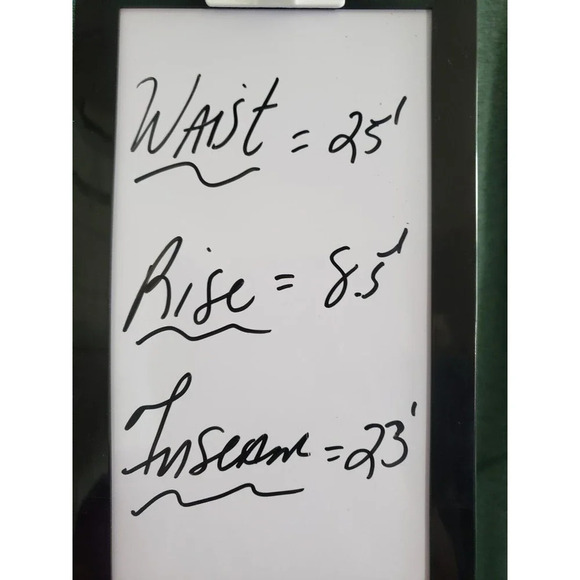 Waist = 25'
Rise = 8.5'
Inseam = 23'